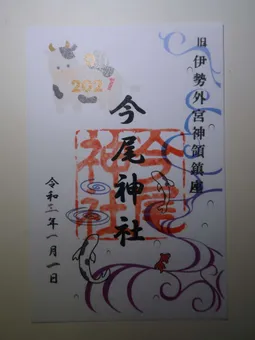 旧伊勢外宮神領鎮座
2021
今尾神社
今尾神社
令和三年一月一日